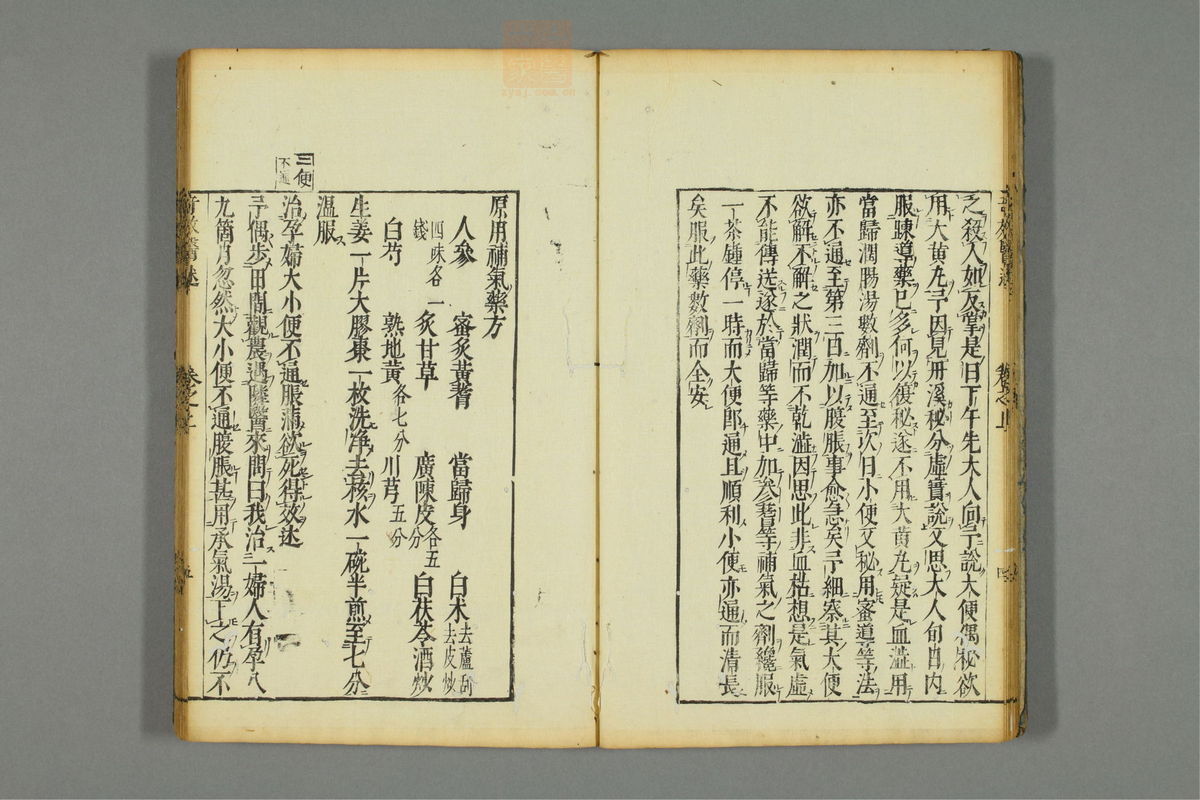 之殺人如反掌是日下午先大人向予說大便偶秘欲
用大黃丸予因見丹溪秘分虛實說又思大人旬日內
服踈導藥已多何以復秘遂不用大黃丸疑是血澁用
當歸潤腸湯數劑不通至次日小便又秘用蜜導等法
亦不通至第三日加以腹脹事愈急矣予細察其大便
欲解不解之狀潤而不乾澁因思此非血枯想是氣虛
不能傳送遂於當歸等藥中加參耆等補氣之劑纔服
一茶鍾停一時而大便即通且順利小便亦通而清長
矣服此藥數劑而全安
原用補氣藥方
人參 蜜炙黃耆 當歸身 白朮去蘆刮去皮炒
四味各一錢 炙甘草 廣陳皮各五分 白茯苓酒炒
白芍 熟地黃各七分 川芎五分
生姜一片大膠棗一枚洗净去核水一碗半煎至七分
溫服
二便不通
治孕婦大小便不通脹滿欲死得效述
予偶步田間觀農遇隣醫來問曰我治一婦人有孕八
九箇月忽然大小便不通腹脹甚用承氣湯下之仍不